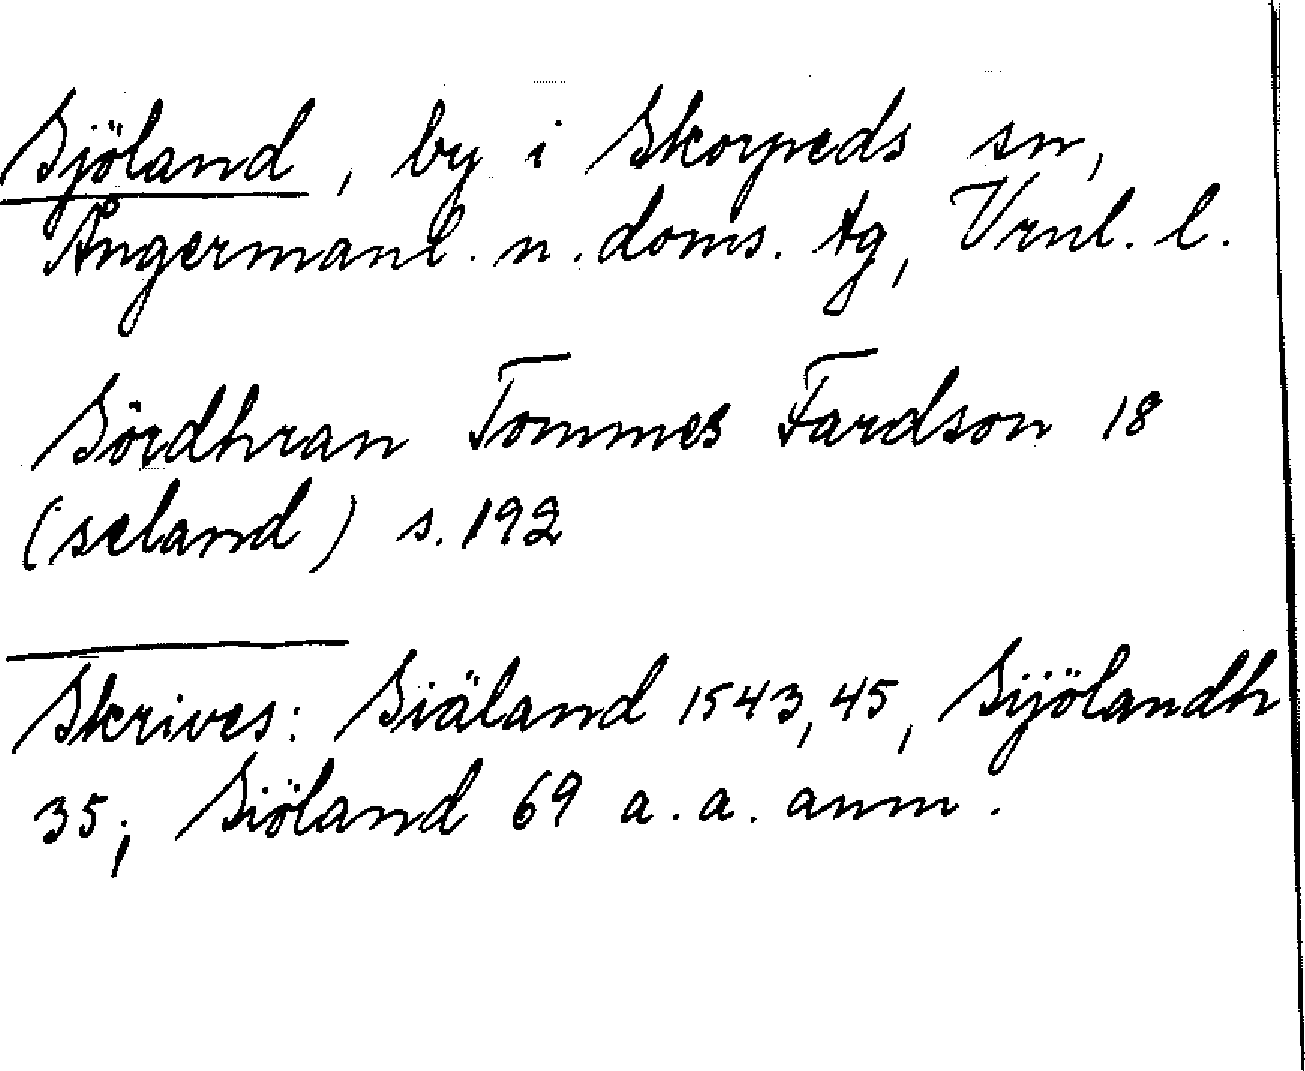 Sjöland, by i Skorpeds sn,
Ångermanl. n. doms. tg, Vrnl. l.
Sördhran Tommes Fardson 18
(seland) s. 192
Skrives: Siäland 1543, 45, Sijölandh
35; Siöland 69 a. a. anm.